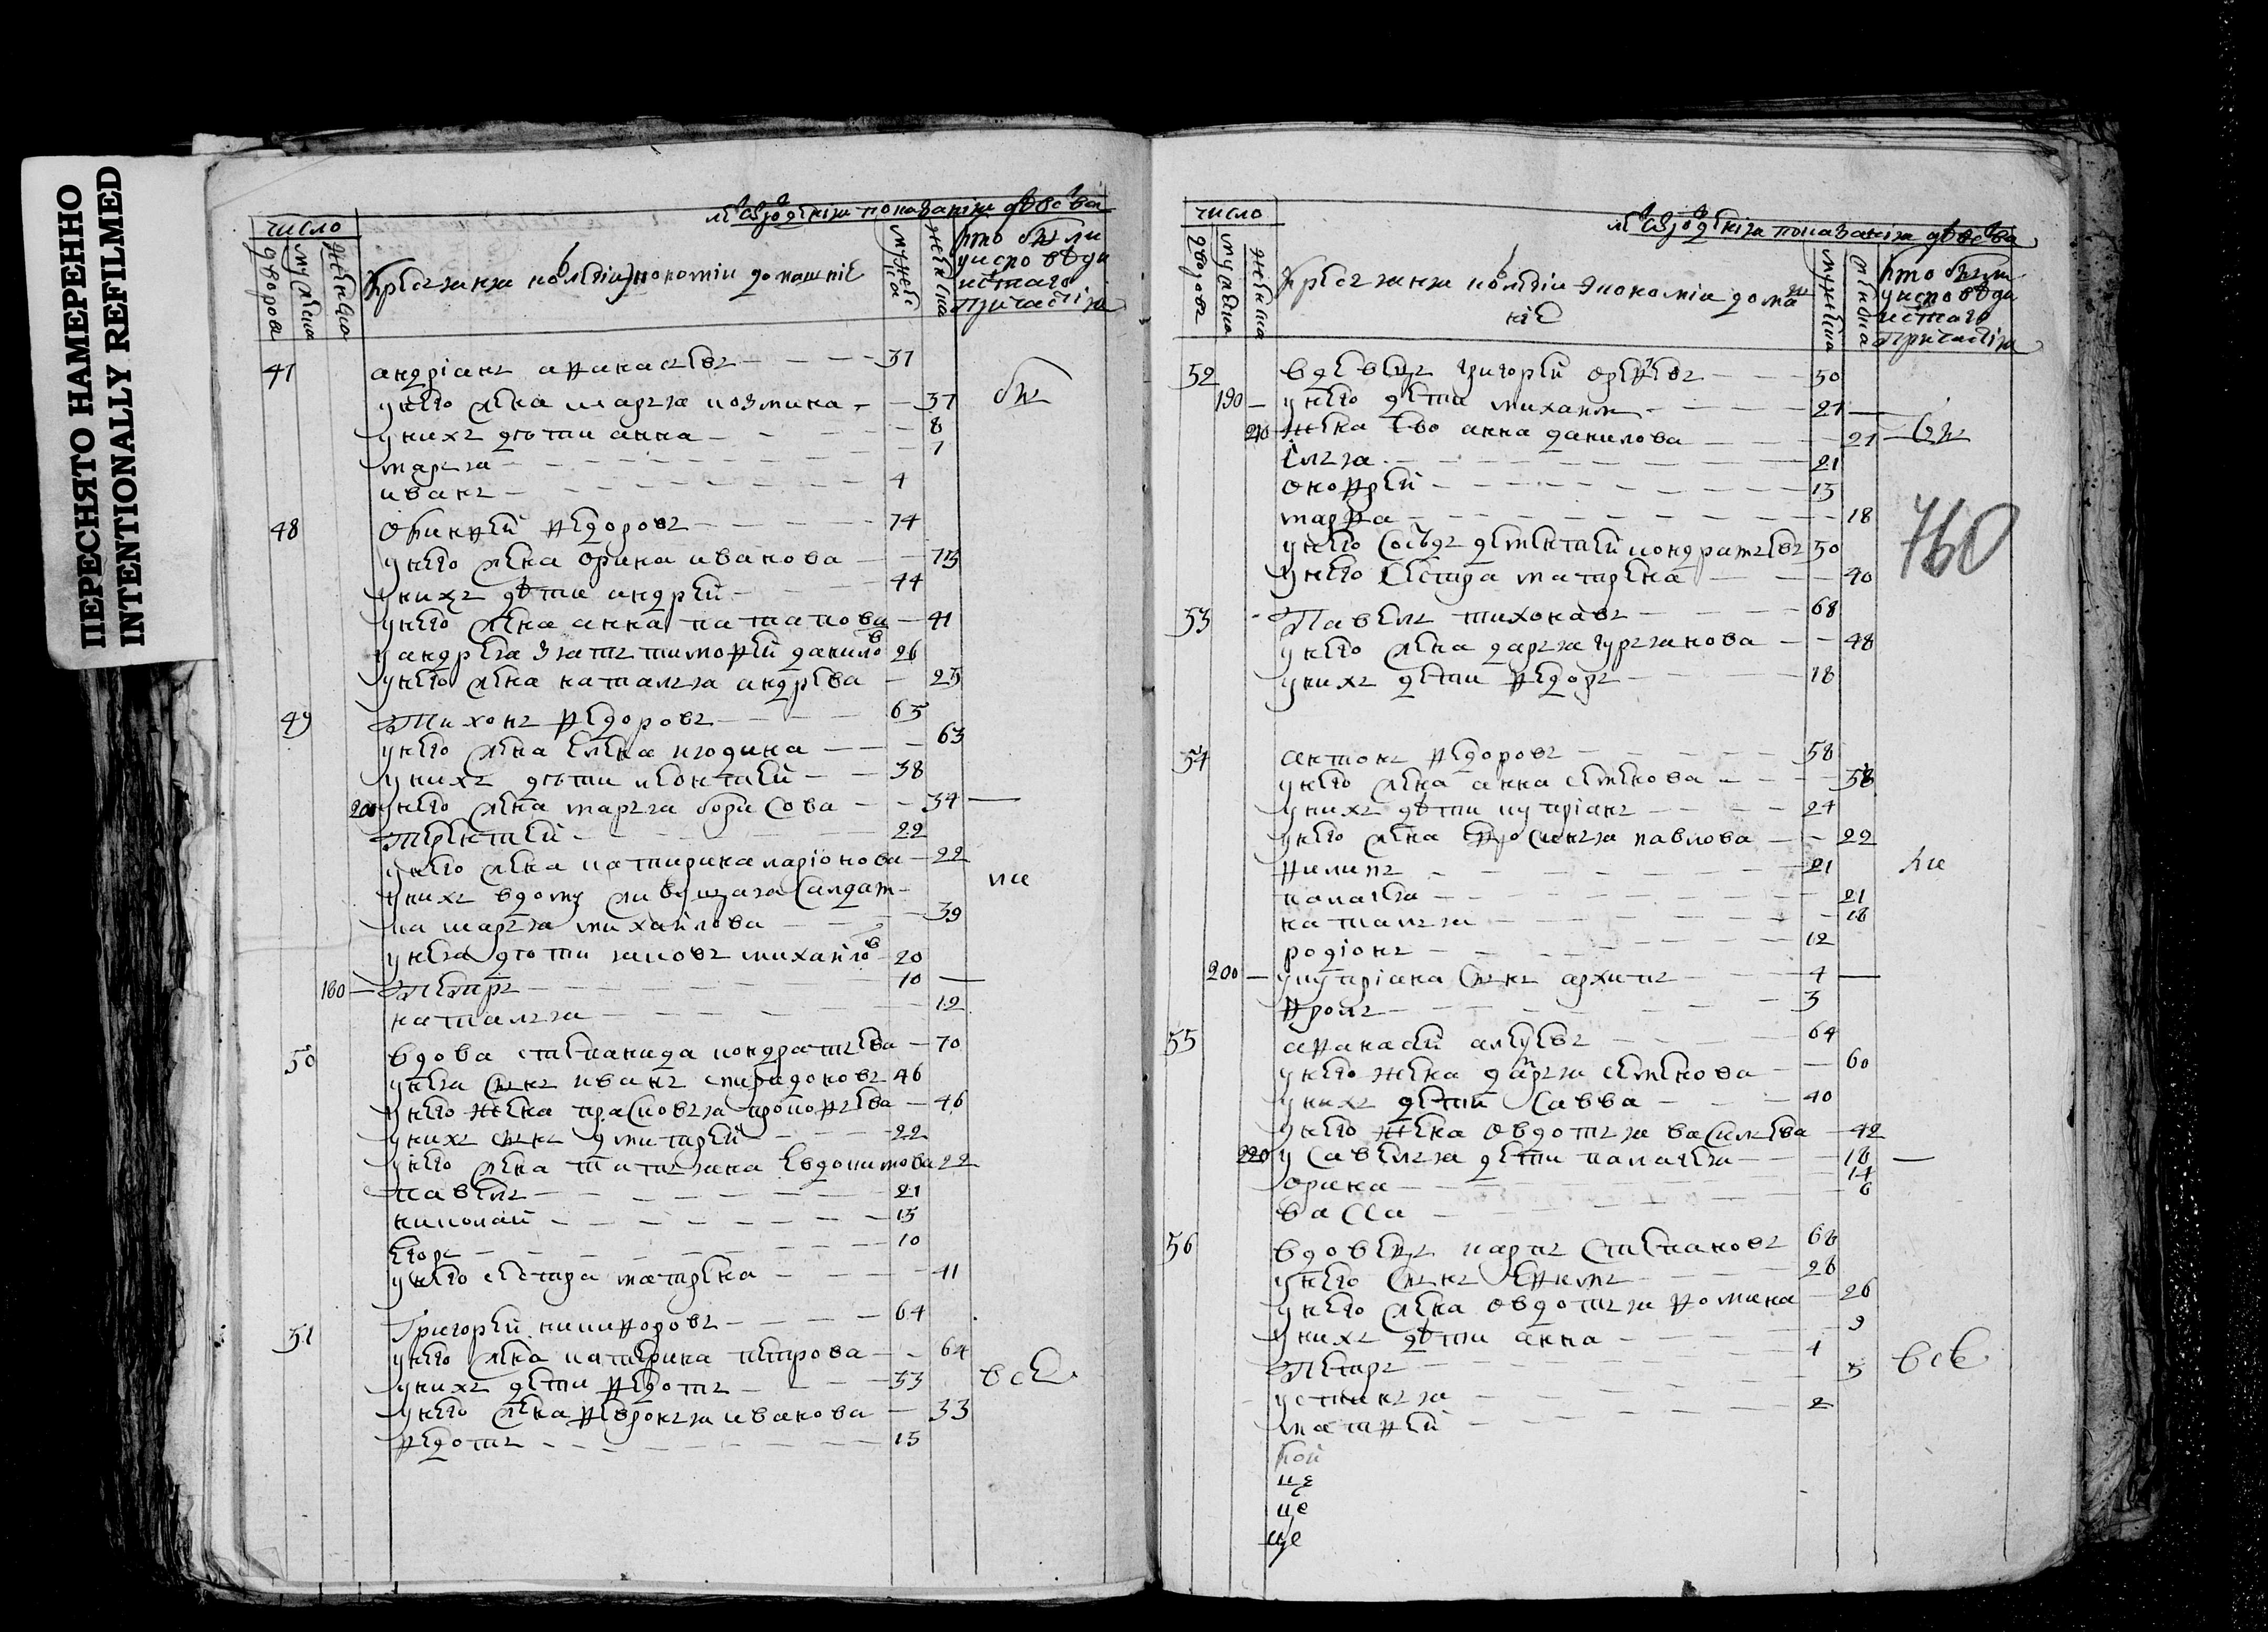 ПЕРЕСНЯТО НАМЕРЕННО
INTENTIONALLY REFILMED
число
дворовъ
мужеска
женска
крестьяня колегіи экономіи домашніе
мужеска
женска
кто были
у исповеди
и стаго
причастія
47 андріанъ афанасьевъ 37
у него жена марья козмина 37 был
у нихъ дѣти анна 8
марья 7
иванъ 4
48 Ѳедоровъ 74
у него жена орина иванова 75
у нихъ дѣти андрей 44
у него жена анна патапова 41
у андрея зять тимофей данилов 26
у него жена наталья андрева 25
49 Тихонъ федоровъ 65
у него жена елена родина 63
у нихъ дѣти леонтей 38
200 у него жена марья борисова 34
Терентей 22
у него жена катирина ларіонова 22
у нихъ в дому живущая салдат-
ка марья михайлова 39
у нея дѣти яковъ михайлов 20
180 Петръ 10
наталья 12
50 вдова степанида кондратьева 70
у нея сынъ иванъ спиридоновъ 46
у него жена прасковья прокофьева 46
у нихъ сынъ дмитрей 22
у него жена татьяна евдокимова 22
павелъ 21
николай 15
егоръ 10
у него сестра матрена 41
51 Григорей никифоровъ 64
у него жена катерина петрова 64
у нихъ дети федотъ 33 все
у него жена февронья иванова 33
федотъ 15
число
дворовъ
мужеска
женска
крестьяня колегіи экономіи домаш
ніе
мужеска
женска
кто были
у исповеди
и стаго
причастія
52 вдовецъ григорей 50
190 у него дети михаил 27
210 жена ево анна данилова 21
илья 21
онофрей 15
марфа 18
760
у него соседъ дементей кондратьевъ 50
у него сестра матрена 40
53 Павелъ тихонавъ 68
у него жена дарья гурьянова 48
у нихъ дети федоръ 18
54 антонъ федоровъ 58
у него жена анна семенова 58
у нихъ дѣти купріянъ 24
у него жена ефросинья павлова 22
филипъ 21
палагея 21
наталья 18
родіонъ 12
200 у купріяна сынъ архипъ 4
фролъ 3
55 афанасей алексевъ 64
у него жена дарья семенова 60
у нихъ дети савва 40
у него жена овдотья васильева 42
220 у савелья дети палагея 18
орина 14
васса 6
56 вдовецъ карпъ степановъ 68
у него сынъ ефимъ 26
у него жена овдотья фомина 26
у нихъ дѣти анна 9
Петръ 4 всѣ
устинья 5
матфей 2